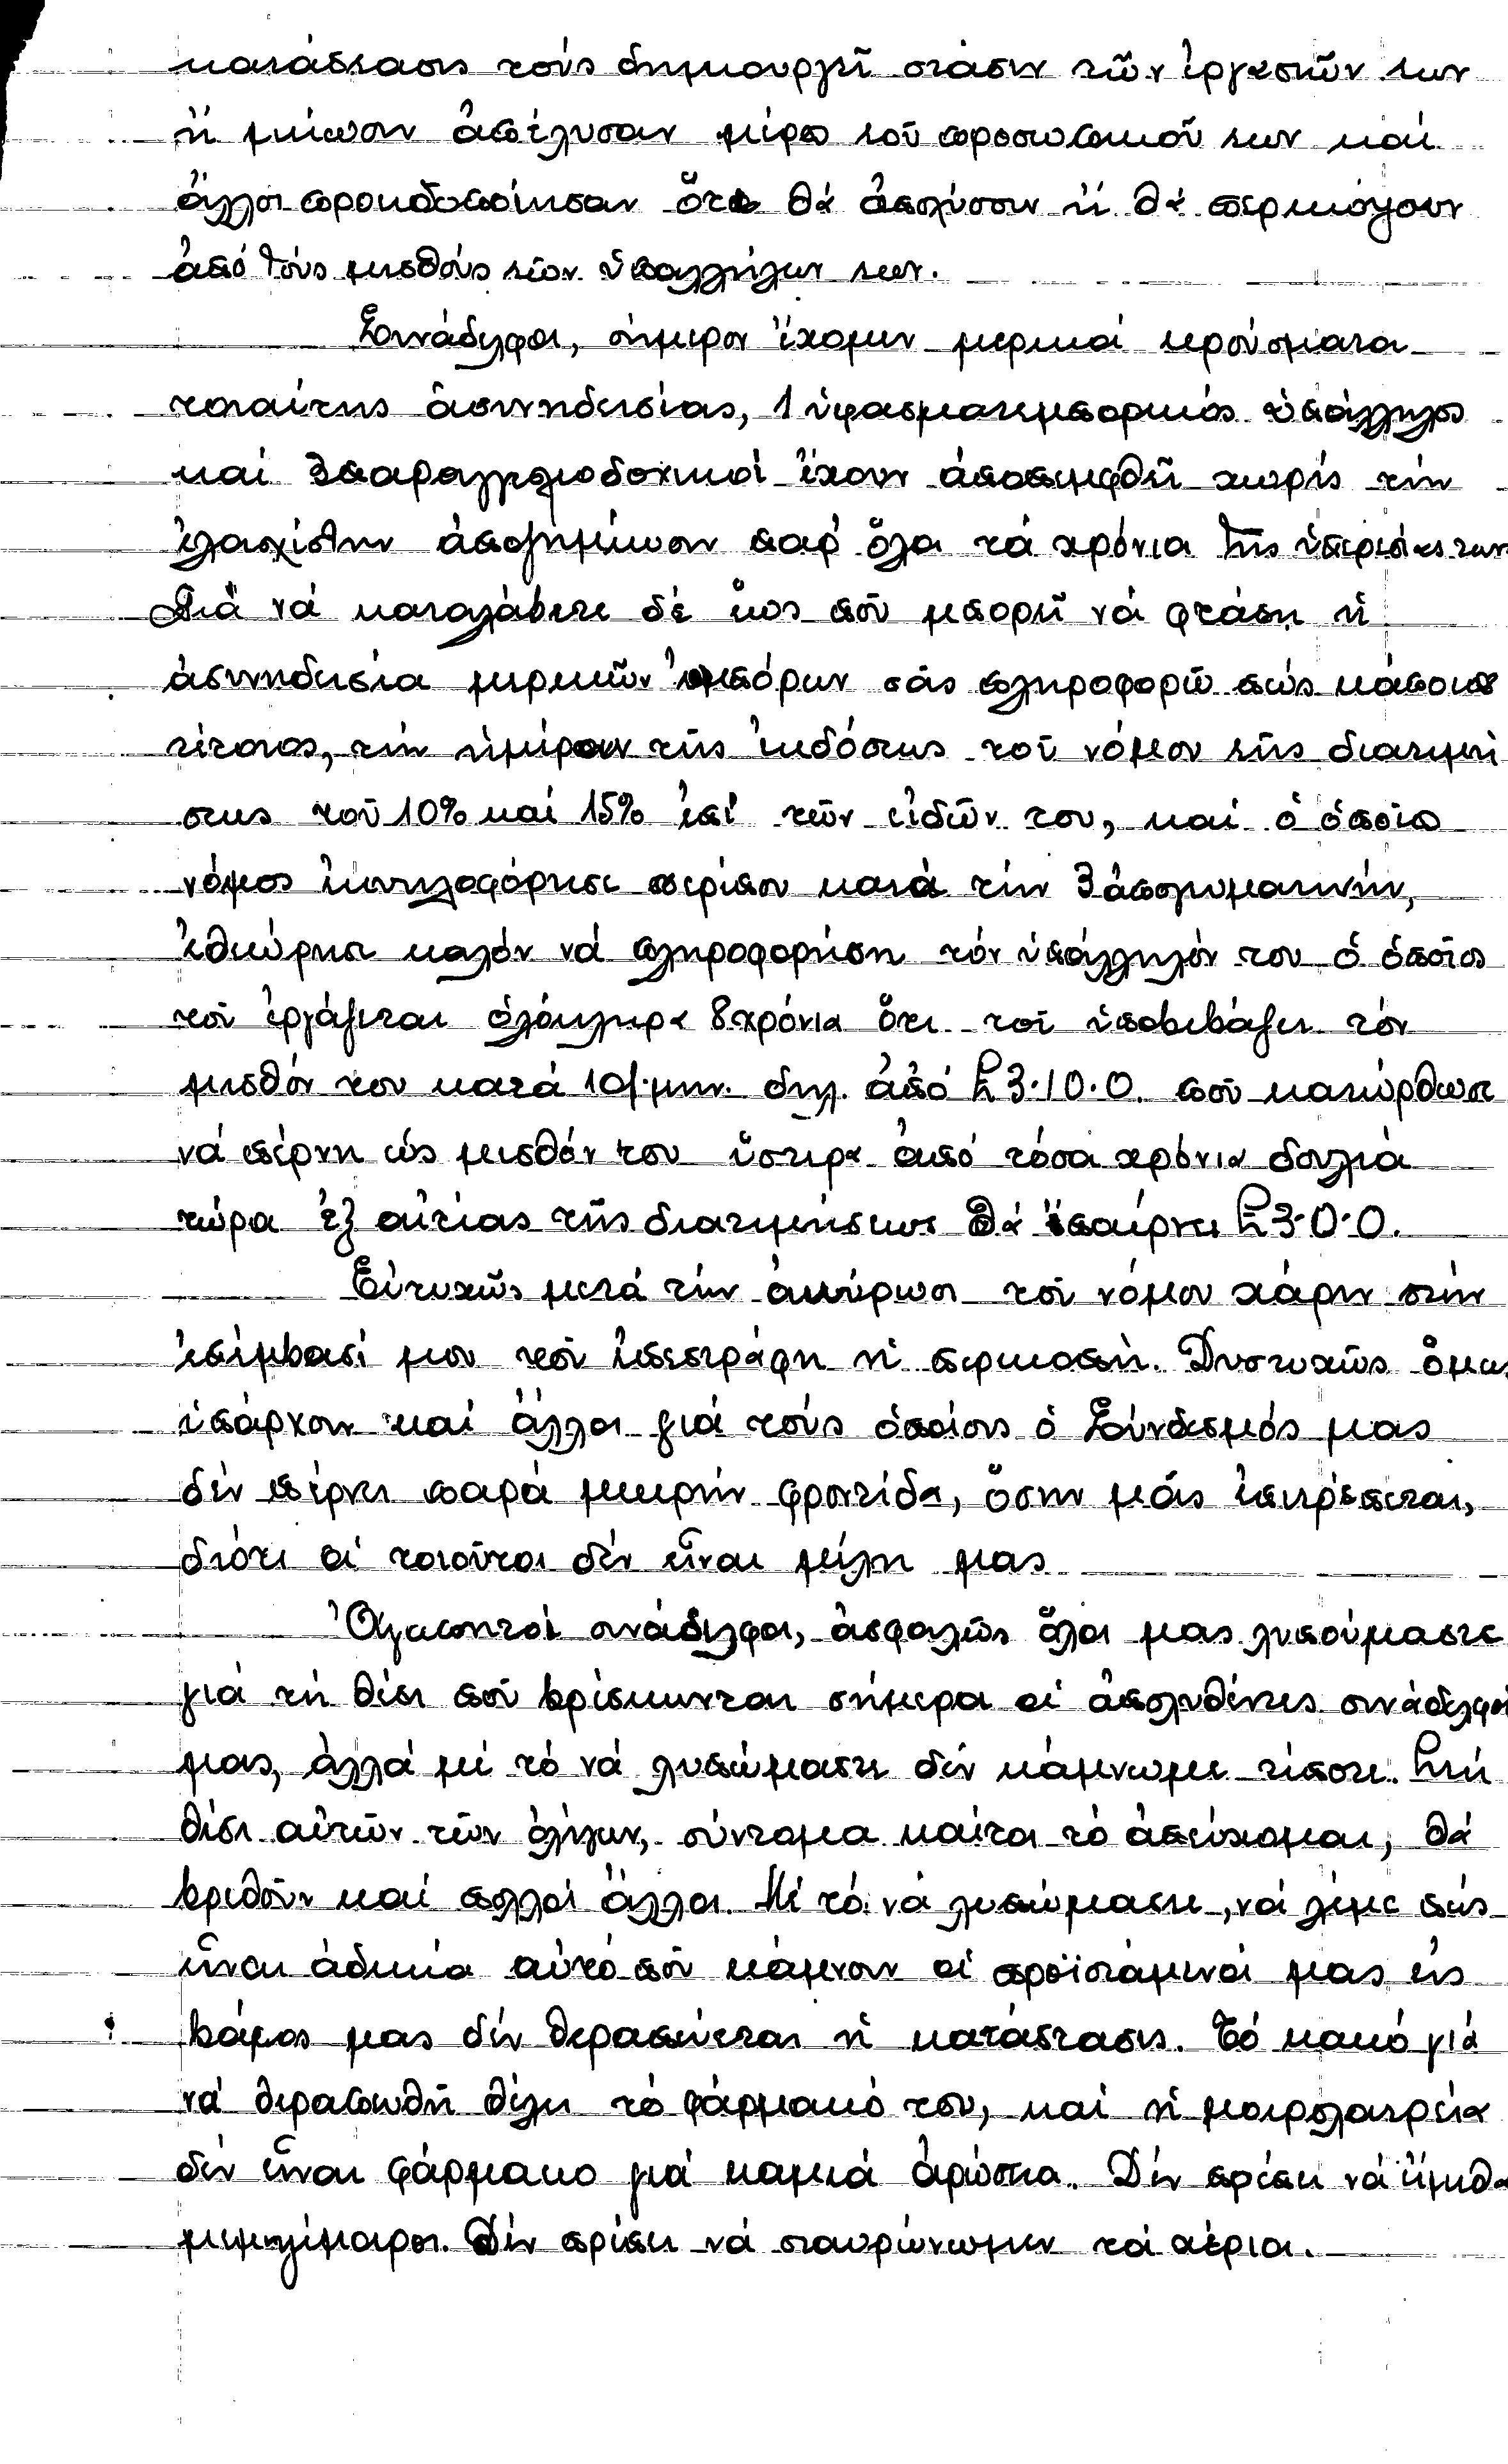 κατάστασις τούς δημιουργεῖ στάσιν τῶν ἐργασιῶν των
ἤ μείωσιν ἀπέλυσαν μέρος τοῦ προσωπικοῦ των καί
ἄλλοι προειδοποίησαν ὅτι θά ἀπολύσουν ἤ θά περικόψουν
ἀπό τούς μισθούς τῶν ὑπαλλήλων των.
Συνάδελφοι, σήμερον ἔχομεν μερικά κρούσματα
τοιαύτης ἀσυνηδεισίας, 1 ὑφασματεμπορικός ὑπάλληλος
καί 3 παραγγελιοδοχικοί ἔχουν ἀποπεμφθῆ χωρίς τήν
ἐλαχίστην ἀποζημίωσιν παρ' ὅλα τά χρόνια τῆς ὑπερεσίας των
Διά νά καταλάβετε δέ ἕως ποῦ μπορεῖ νά φτάση ἡ
ἀσυνηδεισία μερικῶν ἐμπόρων σᾶς πληροφορῶ πώς κάποιος
τέτοιος, τήν ἡμέραν τῆς ἐκδόσεως τοῦ νόμου τῆς διατιμή
σεως τοῦ 10% καί 15% ἐπί τῶν εἰδῶν του, καί ὁ ὁποῖος
νόμος ἐκυκλοφόρησε περίπου κατά τήν 3 ἀπογευματινήν,
ἐθεώρησε καλόν νά πληροφορήση τόν ὑπάλληλόν του ὁ ὁποῖος
τοῦ ἐργάζεται ὁλόκληρα 8 χρόνια ὅτι τοῦ ὑποβιβάζει τόν
μισθόν του κατά 10/- μην. δηλ. ἀπό £3·10·0. ποῦ κατώρθωσε
νά πέρνη ὡς μισθόν του ὕστερα ἀπό τόσα χρόνια δουλιά
τώρα ἐξ αἰτίας τῆς διατιμήσεως θά ἔπαιρνε £3·0·0.
Εὐτυχῶς μετά τήν ἀκύρωσι τοῦ νόμου χάριν στήν
ἐπέμβασί μου τοῦ ἐπεστράφη ἡ περικοπή. Δυστυχῶς ὅμως
ὑπάρχουν καί ἄλλοι γιά τούς ὁποίους ὁ Σύνδεσμός μας
δέν πέρνει παρά μικρήν φροντίδα, ὅσην μᾶς ἐπιτρέπεται,
διότι οἱ τοιοῦτοι δέν εἶναι μέλη μας
Ἀγαπητοί συνάδελφοι, ἀσφαλῶς ὅλοι μας λυπούμαστε
γιά τή θέσι ποῦ βρίσκωνται σήμερα οἱ ἀπολυθέντες συνάδελφοί
μας, ἀλλά μέ τό νά λυπώμαστε δέν κάμνωμε τίποτε. Στή
θέσι αὐτῶν τῶν ὀλίγων, σύντομα καίτοι τό ἀπεύχομαι, θά
βρεθοῦν καί πολλοί ἄλλοι. Μέ τό νά λυπώμαστε, νά λέμε πώς
εἶναι ἀδικία αὐτό ποῦ κάμνουν οἱ προϊστάμενοί μας εἰς
βάρος μας δέν θεραπεύεται ἡ κατάστασις. Τό κακό γιά
νά θεραπευθῆ θέλει τό φάρμακό του, καί ἡ μοιρολατρεία
δέν εἶναι φάρμακο γιά καμμιά ἀρώστια. Δέν πρέπει νά εἴμεθα
μεμψίμοιροι. Δέν πρέπει νά σταυρώνωμεν τά χέρια.